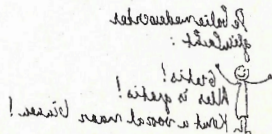 De baliemedewerkster
glimlacht :
Gratis!
Alles is gratis!
Komt u vooral maar binnen!